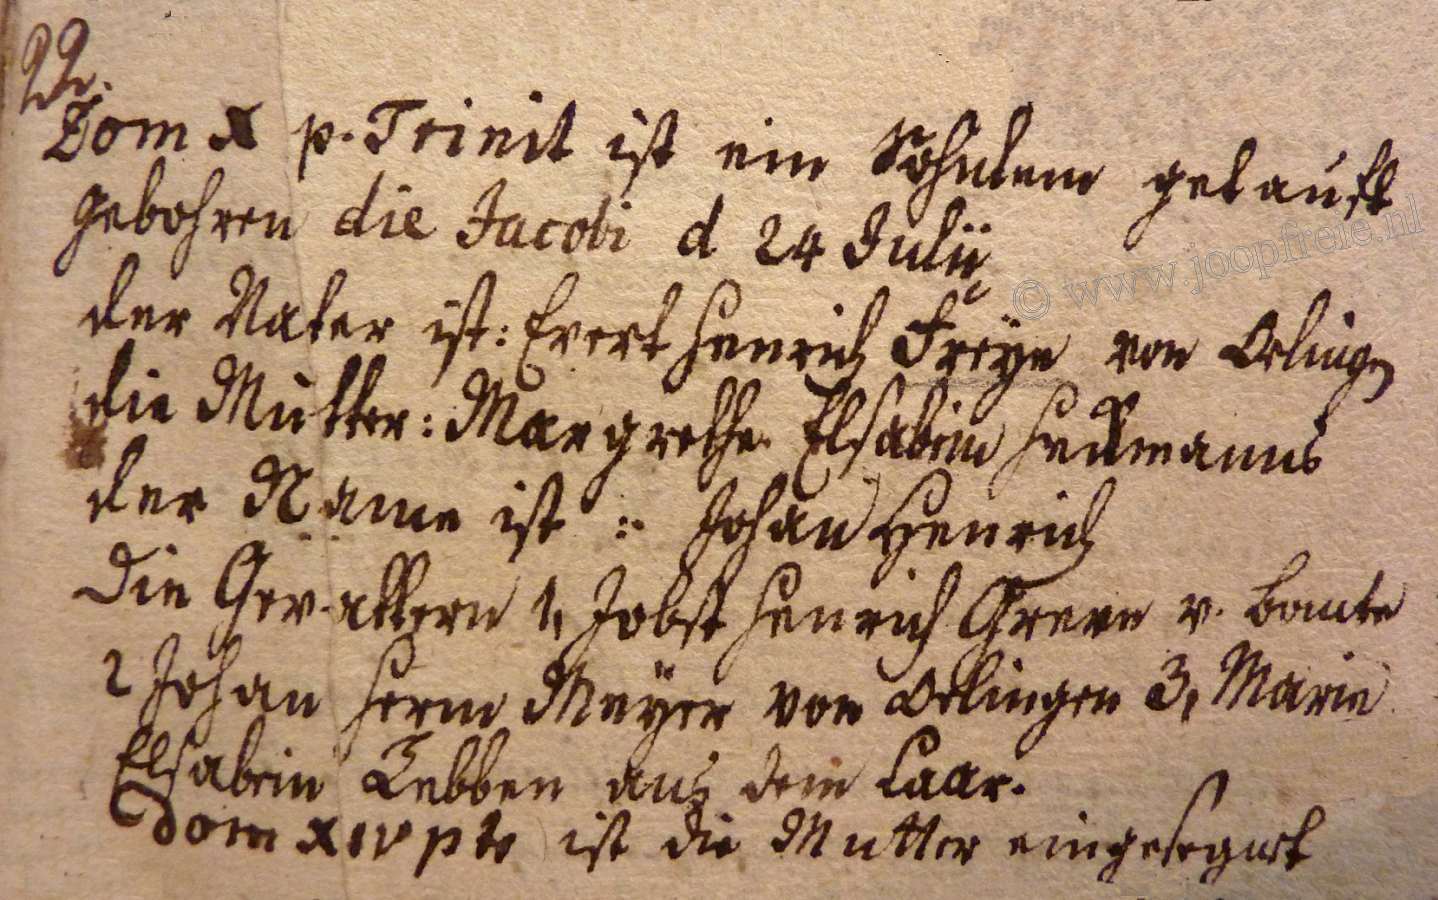 22.
Dom X p. Trinit ist ein Söhnlein getauft
gebohren die Jacobi d 24 Julii
© www.joopfreie.nl
der Vater ist: Evert Henrich Freÿe von Oelingen
die Mutter: Margrethe Elsabein
der Name ist : Johan Henrich
Die Gevattern 1, Jobst Henrich Greve v. Bomte
2 Johan Herm Meÿer von Oelingen 3, Marie
Elsabein Tebben aus dem Laar.
Dom XIV p tr ist die Mutter eingesegnet